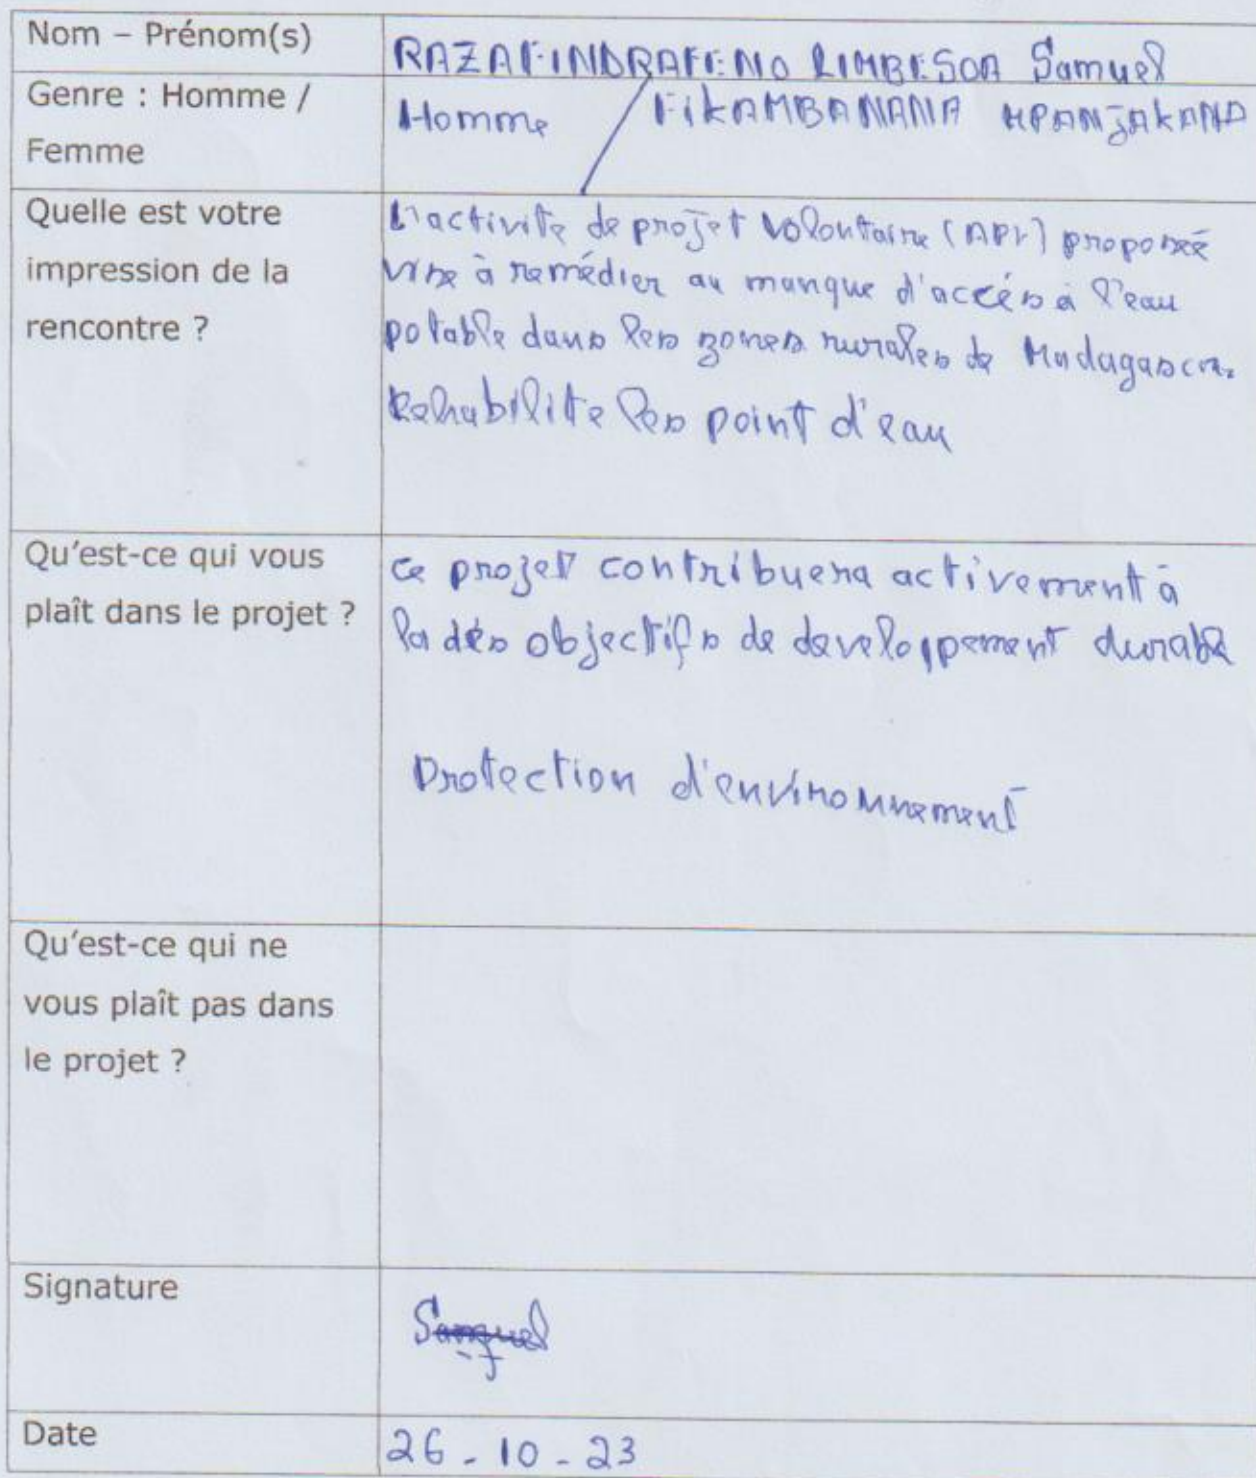 Nom – Prénom(s)
RAZAFINDRAFENO LIMBESOA Samuel
Genre : Homme /
Femme
Homme FIKAMBANANA MPANJAKANA
Quelle est votre
impression de la
rencontre ?
L'activité de projet volontaire (APV) proposée
vise à remédier au manque d'accés à l'eau
potable dans les zones rurales de Madagascar.
Rehabilite les point d'eau
Qu'est-ce qui vous
plaît dans le projet ?
ce projet contribuera activement à
la dés objectifs de developpement durable
Protection d'environnement
Qu'est-ce qui ne
vous plaît pas dans
le projet ?
Signature
Samuel
Date
26 - 10 - 23